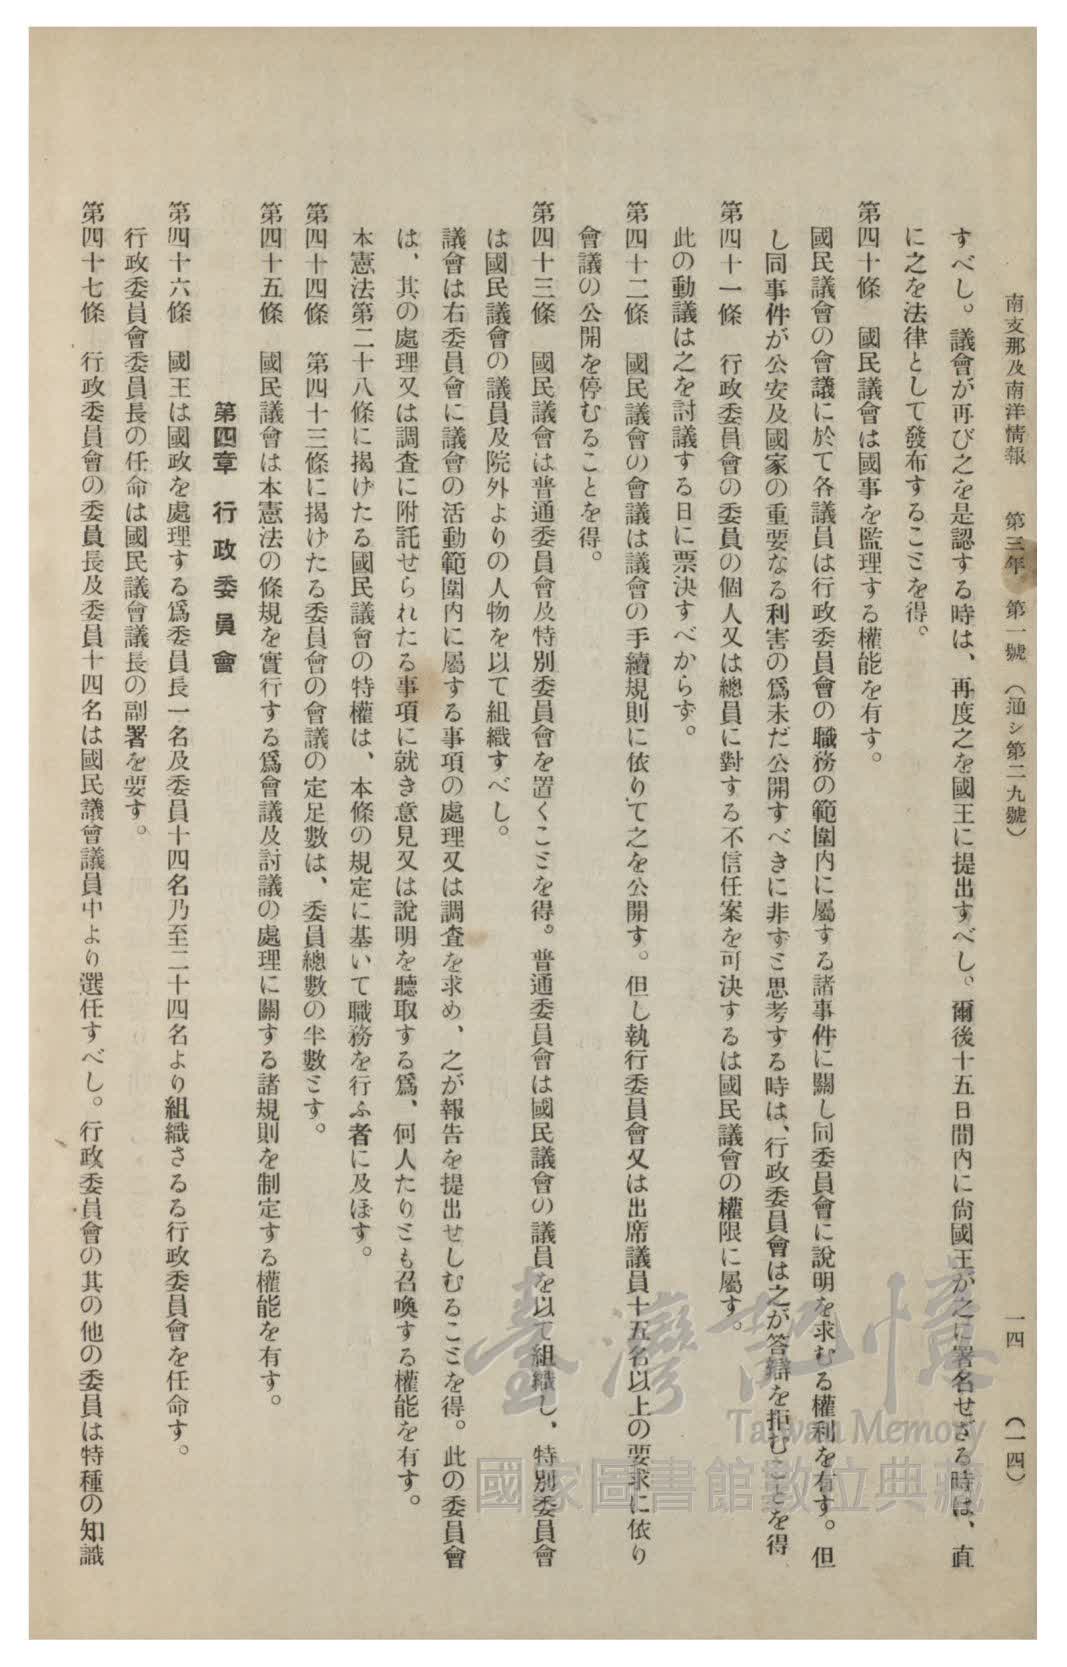 南支那及南洋情報　第三年　第一號（通シ第二九號）　一四　（一四）
すべし。議會が再び之を是認する時は、再度之を國王に提出すべし。爾後十五日間内に尙國王が之に署名せざる時は、直
に之を法律として發布することを得。
第四十條　國民議會は國事を監理する權能を有す。
國民議會の會議に於て各議員は行政委員會の職務の範圍内に屬する諸事件に關し同委員會に說明を求むる權利を有す。但
し同事件が公安及國家の重要なる利害の爲未だ公開すべきに非ずと思考する時は、行政委員會は之が答辯を拒むことを得
第四十一條　行政委員會の委員の個人又は總員に對する不信任案を可決するは國民議會の權限に屬す。
此の動議は之を討議する日に票決すべからず。
第四十二條　國民議會の會議は議會の手續規則に依りて之を公開す。但し執行委員會又は出席議員十五名以上の要求に依り
會議の公開を停むることを得。
第四十三條　國民議會は普通委員會及特別委員會を置くことを得。普通委員會は國民議會の議員を以て組織し、特別委員會
は國民議會の議員及院外よりの人物を以て組織すべし。
議會は右委員會に議會の活動範圍内に屬する事項の處理又は調査を求め、之が報告を提出せしむることを得。此の委員會
は、其の處理又は調査に附託せられたる事項に就き意見又は說明を聽取する爲、何人たりとも召喚する權能を有す。
本憲法第二十八條に揭げたる國民議會の特權は、本條の規定に基いて職務を行ふ者に及ぼす。
第四十四條　第四十三條に揭げたる委員會の會議の定足數は、委員總數の半數とす。
第四十五條　國民議會は本憲法の條規を實行する爲會議及討議の處理に關する諸規則を制定する權能を有す。
第四章　行政委員會
第四十六條　國王は國政を處理する爲委員長一名及委員十四名乃至二十四名より組織さるる行政委員會を任命す。
行政委員會委員長の任命は國民議會議長の副署を要す。
第四十七條　行政委員會の委員長及委員十四名は國民議會議員中より選任すべし。行政委員會の其の他の委員は特種の知識
臺灣記憶
Taiwan Memory
國家圖書館數位典藏